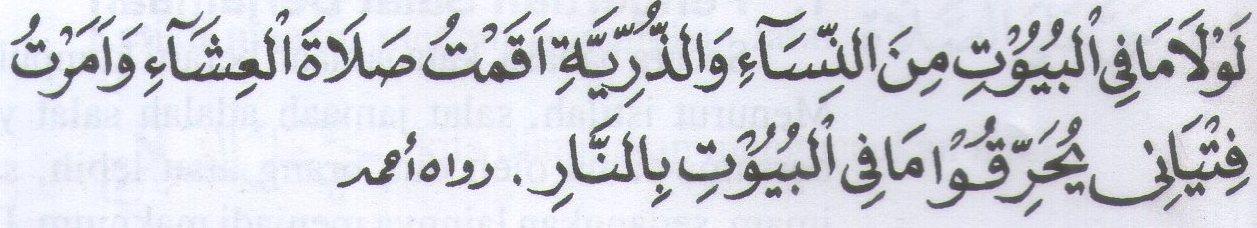 لَوْلَا مَا فِى الْبُيُوْتِ مِنَ النِّسَآءِ وَالذُّرِّيَّةِ اَقَمْتُ صَلَاةَ الْعِشَآءِ وَاَمَرْتُ
فِتْيَانِى يُحَرِّقُوْا مَا فِى الْبُيُوْتِ بِالنَّارِ . رواه أحمد